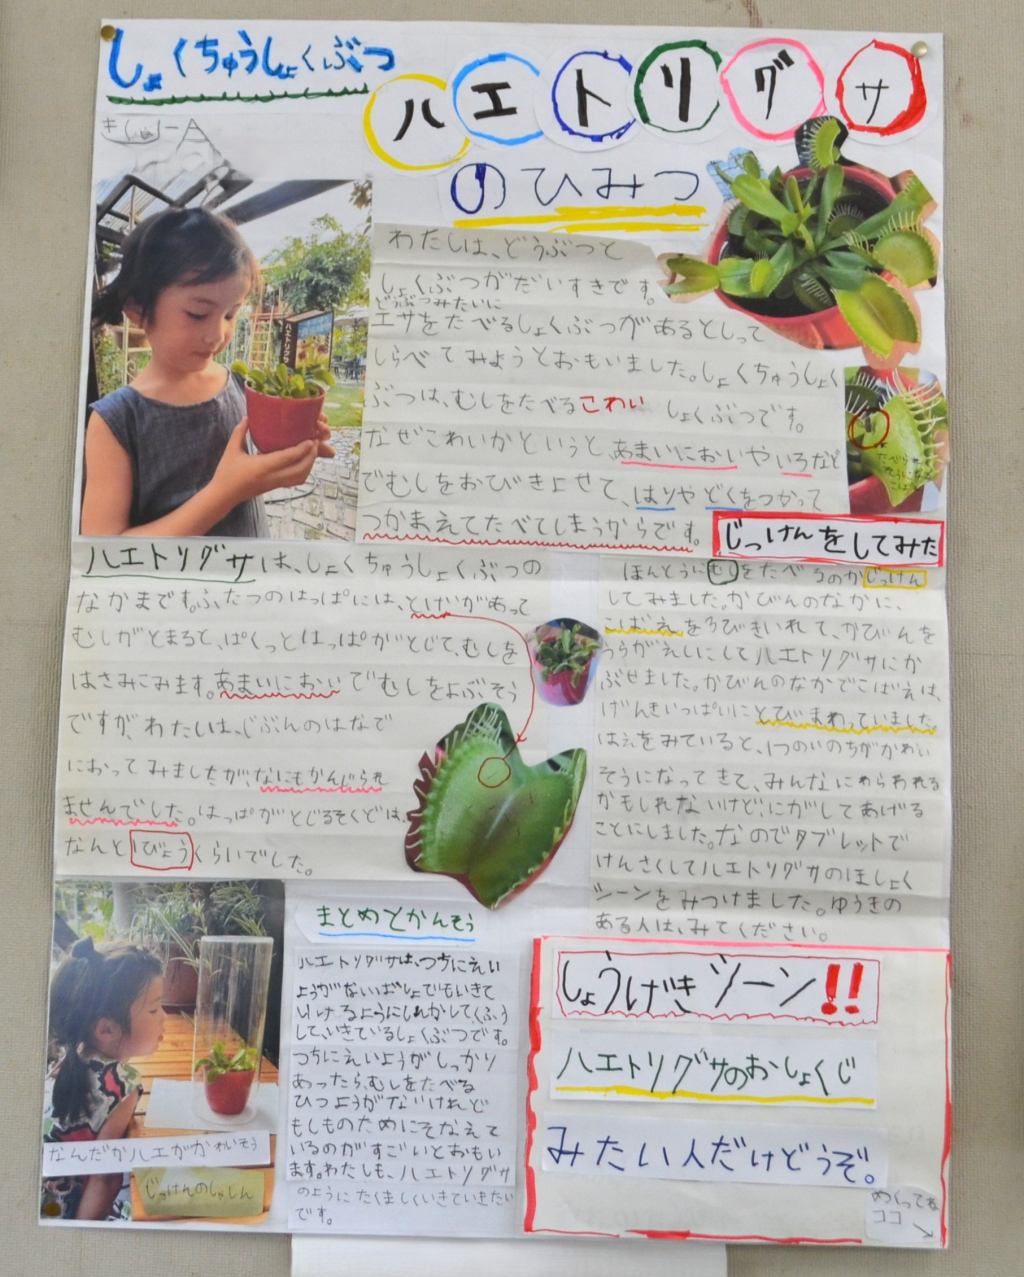 しょくちゅうしょくぶつ
ハエトリグサ
のひみつ
わたしは、どうぶつと
しょくぶつがだいすきです。
どうぶつみたいに
エサをたべるしょくぶつがあるとしって
しらべてみようとおもいました。しょくちゅうしょく
ぶつは、むしをたべるこわい しょくぶつです。
なぜこわいかというと、あまいにおいやいろなど
でむしをおびきよせて、はりやどくをつかって
つかまえてたべてしまうからです。
ハエトリグサ
ハエトリグサは、しょくちゅうしょくぶつの
なかまです。ふたつのはっぱには、とげがあって
むしがとまると、ぱくっとはっぱがとじて、むしを
はさみこみます。あまいにおいでむしをよぶそう
ですが、わたしは、じぶんのはなで
におってみましたが、なにもかんじられ
ませんでした。はっぱがとじるそくどは、
なんと1びょうくらいでした。
じっけんをしてみた
ほんとうにむしをたべるのかじっけん
してみました。かびんのなかに、
こばえをおびきいれて、かびんを
うらがえしにしてハエトリグサにか
ぶせました。かびんのなかでこばえは、
げんきいっぱいにとびまわっていました。
はえをみていると、1つのいのちがかわい
そうになってきて、みんなにわらわれる
かもしれないけど、にがしてあげる
ことにしました。なのでタブレットで
けんさくしてハエトリグサのほしょく
シーンをみつけました。ゆうきの
ある人は、みてください。
なんだかハエがかわいそう
じっけんのしゃしん
まとめとかんそう
ハエトリグサは、つちにえい
ようがないばしょでもいきて
いけるようにしんかしてくふう
して、いきているしょくぶつです。
つちにえいようがしっかり
あったら、むしをたべる
ひつようがないけれど
もしものためにそなえて
いるのがすごいとおもい
ます。わたしも、ハエトリグサ
のようにたくましくいきていきたい
です。
しょうげきシーン!!
ハエトリグサのおしょくじ
みたい人だけどうぞ。
めくってね
ココ